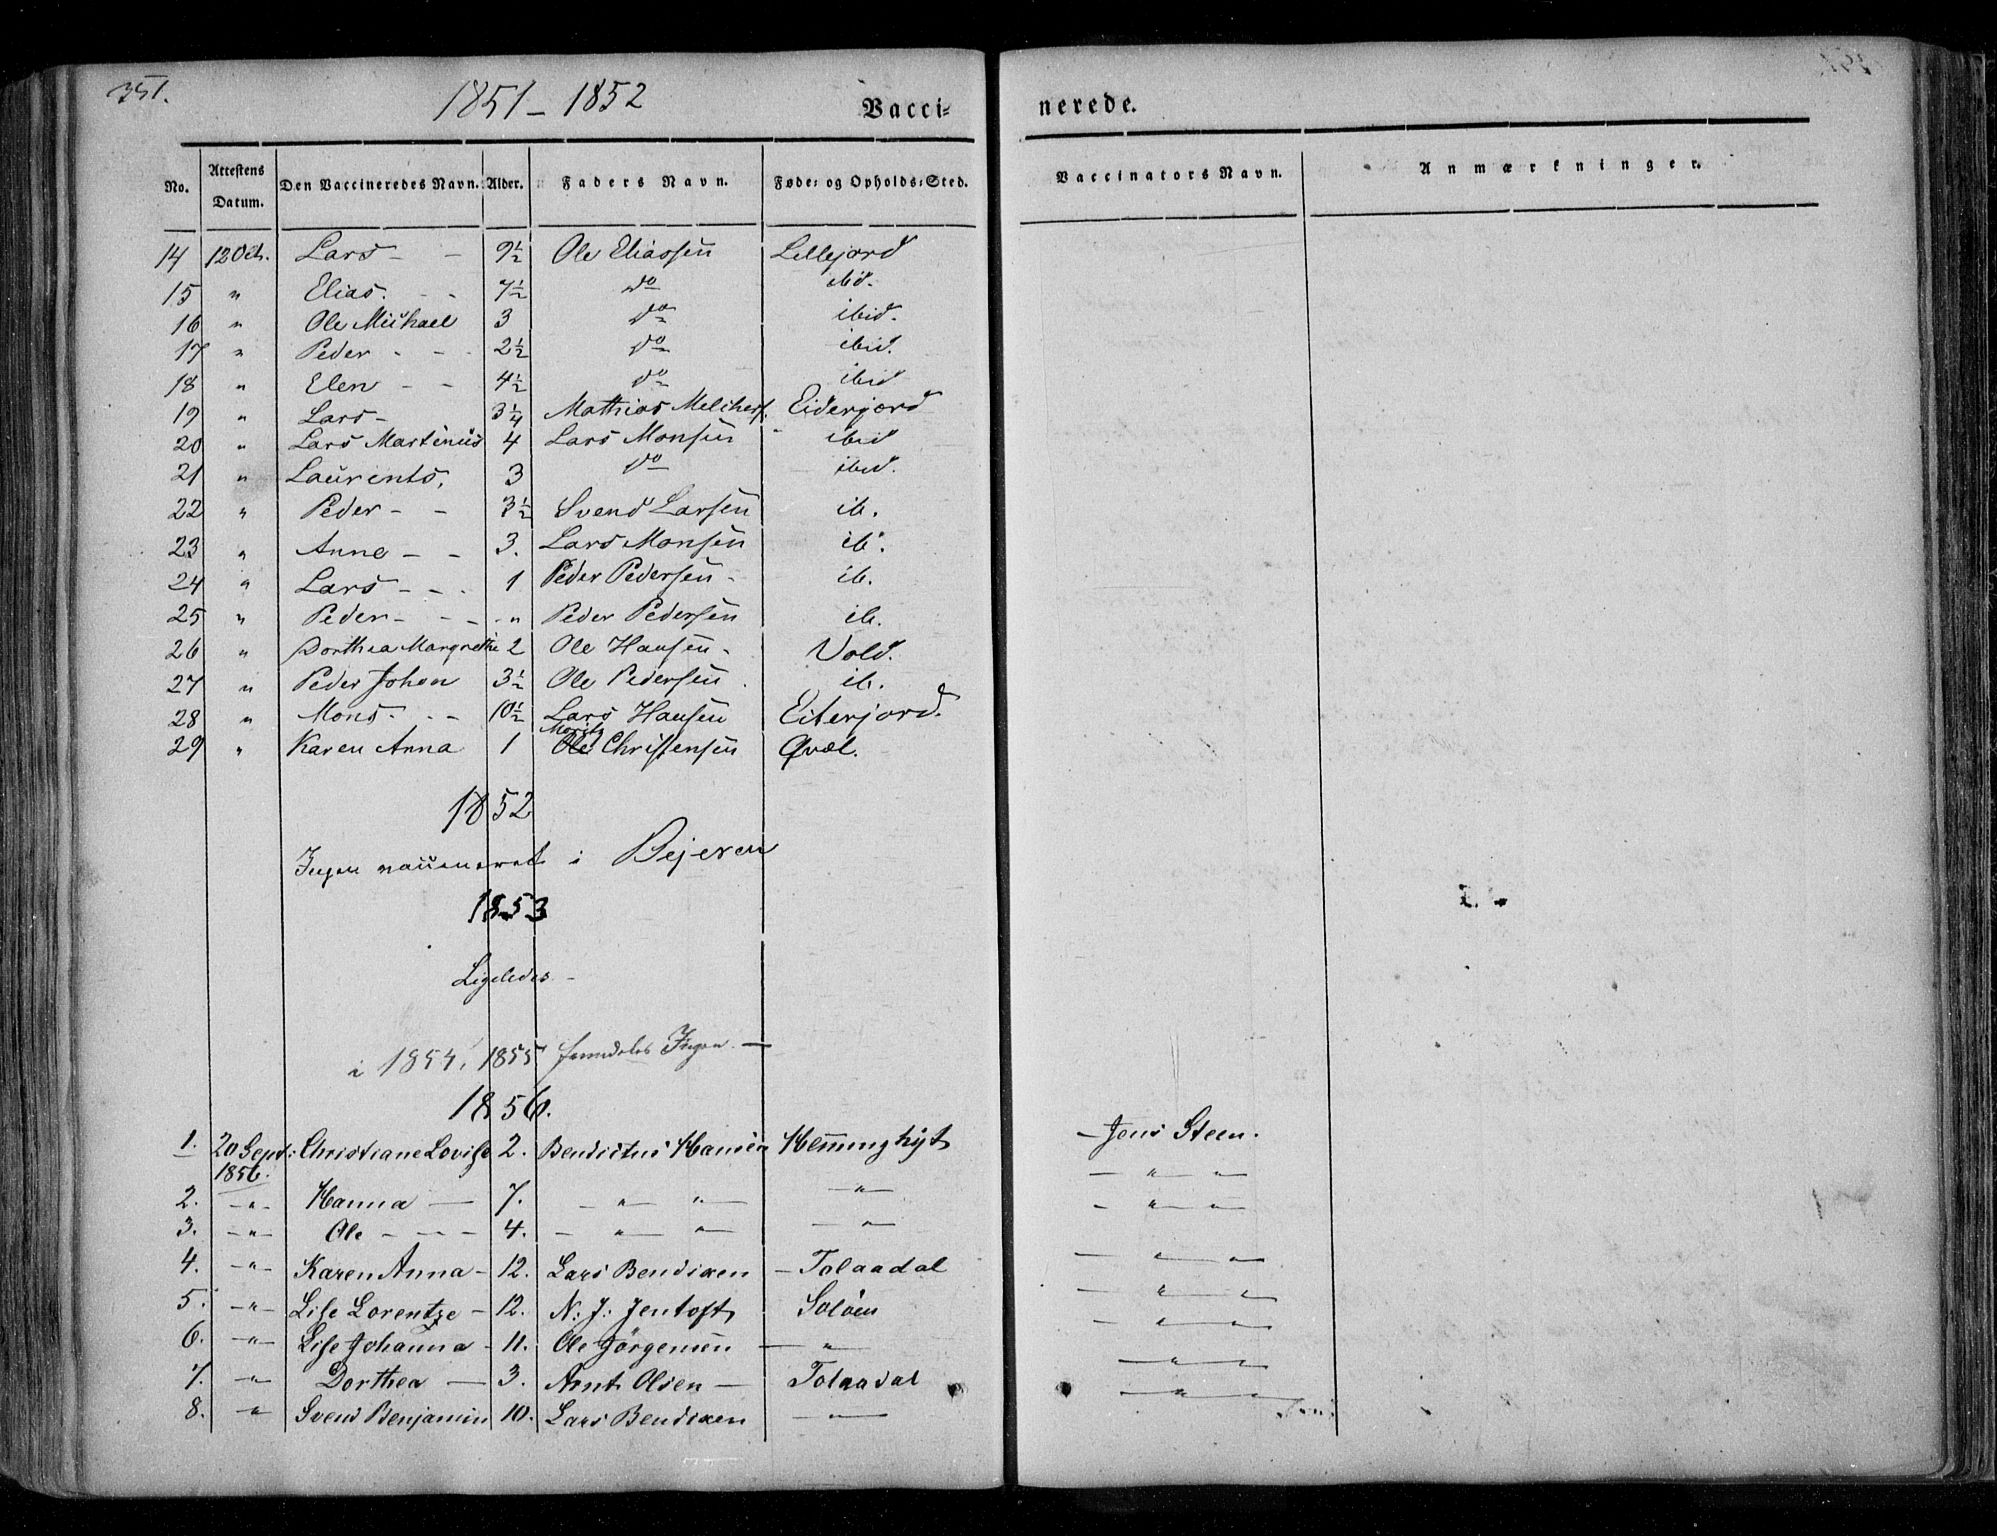 351.
1851 – 1852
Vacci=
nerede.
No. Attestens Datum. Den Vaccineredes Navn. Alder. Faders Navn. Føde= og Opholds=Sted. Vaccinators Navn. Anmærkninger.
14 12 Oct. Lars - - 9½ Ole Eliassen Lillejord
15 " Elias. - - 7½ do ibid.
16 " Ole Michael 3 do ibid.
17 " Peder - - - 2½ do ibid.
18 " Elen - - 4½ do ibid
19 " Lars - 3¼ Mathias Melchers. Eiderjord
20 " Lars Martinus 4 Lars Monsen ibid
21 " Laurents, 3 do ibid.
22 " Peder - - 3½ Svend Larsen ib.
23 " Anne - - 3. Lars Monsen ib.
24 " Lars - - - 1 Peder Pedersen - ib.
25 " Peder - - - - " Peder Pedersen ib.
26 " Dorthea Margrethe 2 Ole Hansen - Vold.
27 " Peder Johan 3½ Ole Pedersen ib.
28 " Mons - - - 10½ Lars Hansen Eiterjord.
29 " Karen Anna 1 Ole Christensen Qvæl.
1852
Ingen vaccineret i Bejeren
1853
Ligeledes -
i 1854, 1855 fremdeles Ingen. —
1856.
1. 20 Sept: Christiane Lovise 2. Bendictus Hansen Hemminghyt – Jens Steen.
1856.
2. -"- Hanna — 7. - " " — -"- - " " -
3. -"- Ole - - - 4. - " " — -"- - " " -
4. -"- Karen Anna - 12. Lars Bendixen – Tolaadal — " " -
5. -"- Lise Lorentze - 12. N: J: Jentoft Soløen - " " -
6. -"- Lise Johanna - 11. Ole Jörgensen — " - - " " -
7. -"- Dorthea — 3. Arnt Olsen — Tolaadal — " " -
8. -"- Svend Benjamin 10. Lars Bendixen -"- - " " -